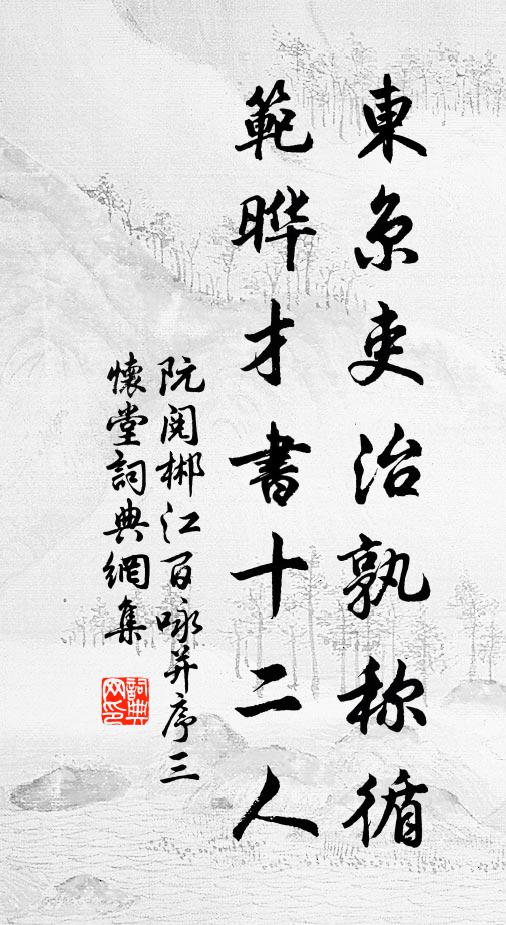 東京吏治孰称循
範晔才書十二人
阮閱郴江百咏并序三
懷堂詞典網集
詞典网印